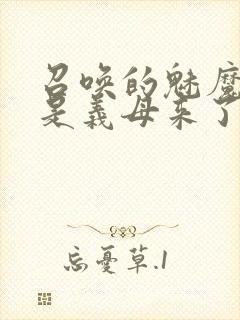 召唤的魅魔
是义母来了
忘忧草.1